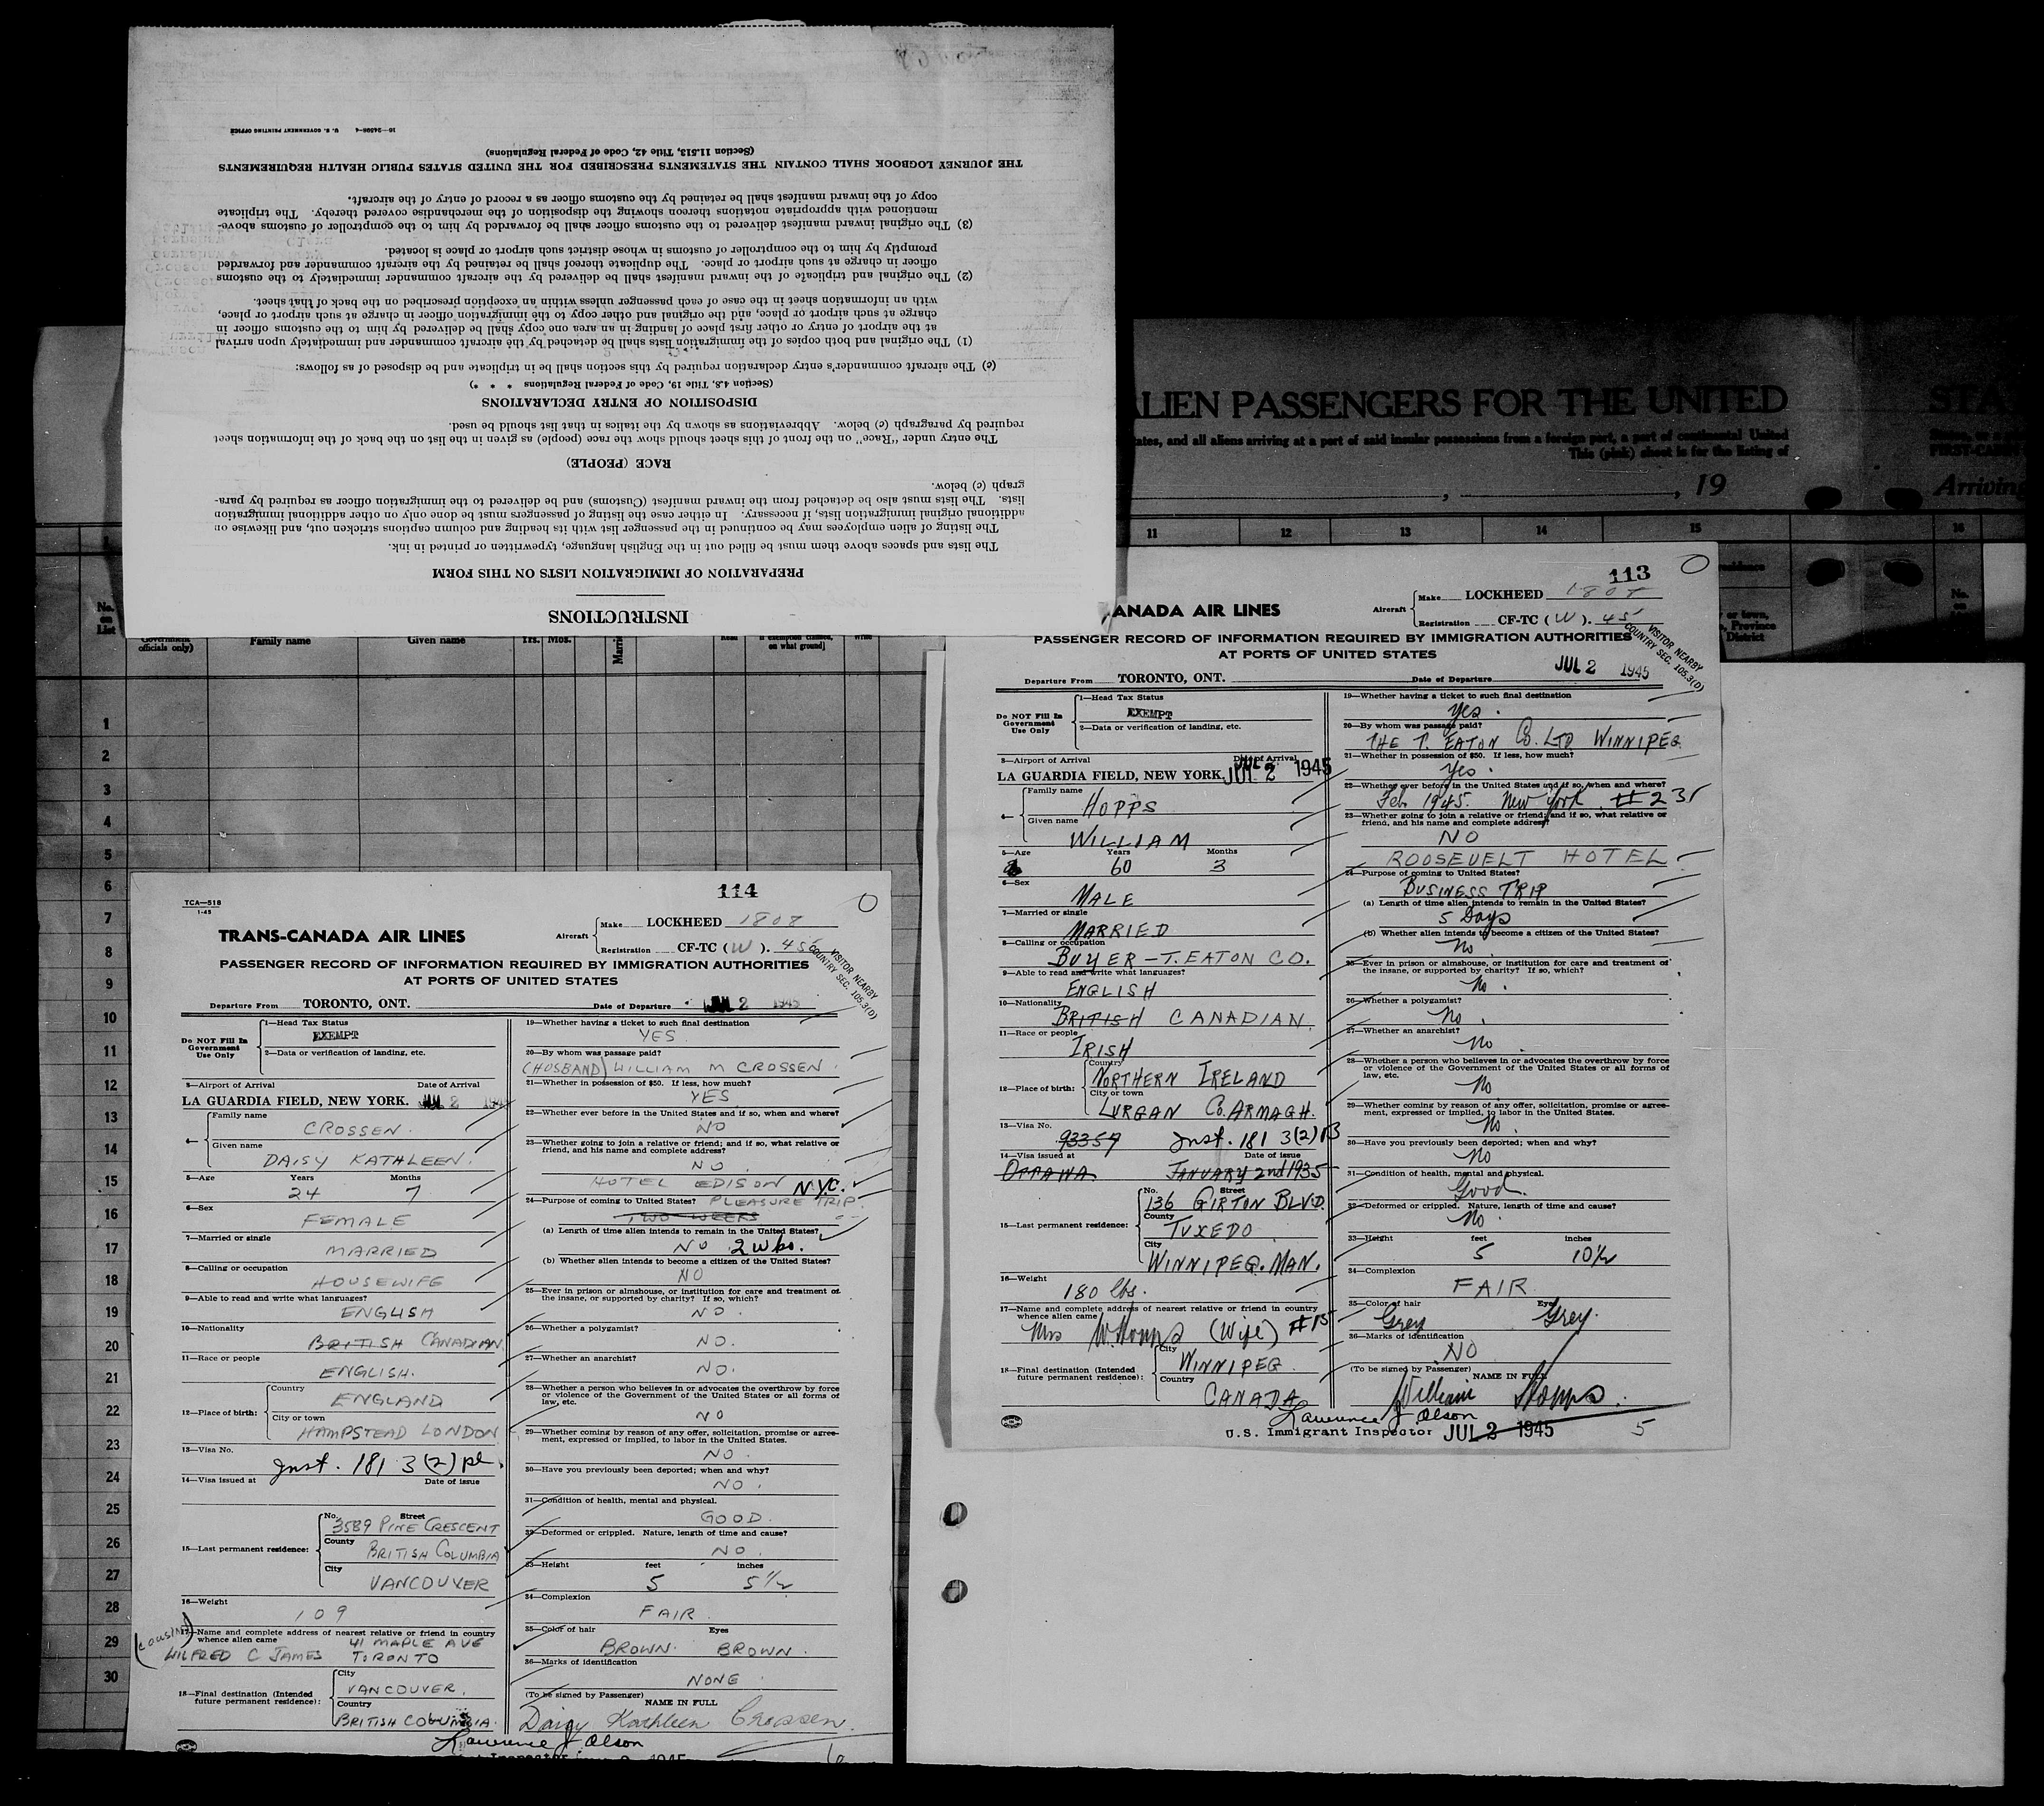 INSTRUCTIONS
PREPARATION OF IMMIGRATION LISTS ON THIS FORM
The lists and spaces above them must be filled out in the English language, typewritten or printed in ink.
The listing of alien employees may be continued in the passenger list with its heading and column captions stricken out, and likewise on
additional original immigration lists, if necessary. In either case the listing of passengers must be done only on other additional immigration
lists. The lists must also be detached from the inward manifest (Customs) and be delivered to the immigration officer as required by para-
graph (c) below.
RACE (PEOPLE)
The entry under "Race" on the front of this sheet should show the race (people) as given in the list on the back of the information sheet
required by paragraph (c) below. Abbreviations as shown by the italics in that list should be used.
DISPOSITION OF ENTRY DECLARATIONS
(Section 4.8, Title 19, Code of Federal Regulations * * *)
(c) The aircraft commander's entry declaration required by this section shall be in triplicate and be disposed of as follows:
(1) The original and both copies of the immigration lists shall be detached by the aircraft commander and immediately upon arrival
at the airport of entry or other first place of landing in an area one copy shall be delivered by him to the customs officer in
charge at such airport or place, and the original and other copy to the immigration officer in charge at such airport or place,
with an information sheet in the case of each passenger unless within an exception prescribed on the back of that sheet.
(2) The original and triplicate of the inward manifest shall be delivered by the aircraft commander immediately to the customs
officer in charge at such airport or place. The duplicate thereof shall be retained by the aircraft commander and forwarded
promptly by him to the comptroller of customs in whose district such airport or place is located.
(3) The original inward manifest delivered to the customs officer shall be forwarded by him to the comptroller of customs above-
mentioned with appropriate notations thereon showing the disposition of the merchandise covered thereby. The triplicate
copy of the inward manifest shall be retained by the customs officer as a record of entry of the aircraft.
THE JOURNEY LOGBOOK SHALL CONTAIN THE STATEMENTS PRESCRIBED FOR THE UNITED STATES PUBLIC HEALTH REQUIREMENTS
(Section 11.513, Title 42, Code of Federal Regulations)
16—24598-4 U. S. GOVERNMENT PRINTING OFFICE
ALIEN PASSENGERS FOR THE UNITED STA
ates, and all aliens arriving at a port of said insular possessions from a foreign port, a part of continental United
This (pink) sheet is for the listing of
FIRST-CA
, , 19
Arriving
11 12 13 14 15 16
No. on List
Government officials only)
Family name
Given name
Yrs. Mos.
Read
on what ground]
Write
or town,
Province
District
No.
on
1
2
3
4
5
6
7
8
9
10
11
12
13
14
15
16
17
18
19
20
21
22
23
24
25
26
27
28
29
30
113
ANADA AIR LINES
Aircraft
Make LOCKHEED 1808
Registration CF-TC (W). 45
PASSENGER RECORD OF INFORMATION REQUIRED BY IMMIGRATION AUTHORITIES
AT PORTS OF UNITED STATES
VISITOR NEARBY
COUNTRY SEC. 105.3(D)
Departure From TORONTO, ONT. Date of Departure JUL 2 1945
Do NOT Fill In Government Use Only
1—Head Tax Status
EXEMPT
2—Data or verification of landing, etc.
3—Airport of Arrival Date of Arrival
LA GUARDIA FIELD, NEW YORK. JUL 2 1945
4—
Family name
HOPPS
Given name
WILLIAM
5—Age Years Months
60 3
6—Sex
MALE
7—Married or single
MARRIED
8—Calling or occupation
BUYER - T. EATON CO.
9—Able to read and write what languages?
ENGLISH
10—Nationality
BRITISH CANADIAN.
11—Race or people
IRISH
12—Place of birth:
Country
NORTHERN IRELAND
City or town
LURGAN Co. ARMAGH.
13—Visa No.
93359 Inst. 181 3(2)B
14—Visa issued at Date of issue
OTTAWA JANUARY 2nd 1935
15—Last permanent residence:
No. Street
136 GIRTON BLVD.
County
TUXEDO
City
WINNIPEG. MAN.
16—Weight
180 lbs.
17—Name and complete address of nearest relative or friend in country
whence alien came
Mrs W. Hopps (Wife) #15
18—Final destination (Intended
future permanent residence):
City
WINNIPEG
Country
CANADA
19—Whether having a ticket to such final destination
Yes.
20—By whom was passage paid?
THE T. EATON Co. LTD WINNIPEG
21—Whether in possession of $50. If less, how much?
Yes.
22—Whether ever before in the United States and if so, when and where?
Feb 1945. New York. #23
23—Whether going to join a relative or friend; and if so, what relative or
friend, and his name and complete address?
NO
ROOSEVELT HOTEL
24—Purpose of coming to United States?
BUSINESS TRIP
(a) Length of time alien intends to remain in the United States?
5 Days
(b) Whether alien intends to become a citizen of the United States?
No
25—Ever in prison or almshouse, or institution for care and treatment of
the insane, or supported by charity? If so, which?
No.
26—Whether a polygamist?
No.
27—Whether an anarchist?
No
28—Whether a person who believes in or advocates the overthrow by force
or violence of the Government of the United States or all forms of
law, etc.
No
29—Whether coming by reason of any offer, solicitation, promise or agree-
ment, expressed or implied, to labor in the United States.
No.
30—Have you previously been deported; when and why?
No
31—Condition of health, mental and physical.
Good.
32—Deformed or crippled. Nature, length of time and cause?
No.
33—Height feet inches
5 10½
34—Complexion
FAIR
35—Color of hair Eyes
Grey Grey.
36—Marks of identification
NO
(To be signed by Passenger) NAME IN FULL
William Hopps.
Lawrence J Olson
U.S. Immigrant Inspector JUL 2 1945
5
TCA—518
1-45
114
TRANS-CANADA AIR LINES
Aircraft
Make LOCKHEED 1808
Registration CF-TC (W). 456
PASSENGER RECORD OF INFORMATION REQUIRED BY IMMIGRATION AUTHORITIES
AT PORTS OF UNITED STATES
VISITOR NEARBY
COUNTRY SEC. 105.3(D)
Departure From TORONTO, ONT. Date of Departure JUL 2 1945
Do NOT Fill In Government Use Only
1—Head Tax Status
EXEMPT
2—Data or verification of landing, etc.
3—Airport of Arrival Date of Arrival
LA GUARDIA FIELD, NEW YORK. JUL 2 194
4—
Family name
CROSSEN.
Given name
DAISY KATHLEEN.
5—Age Years Months
24 7
6—Sex
FEMALE
7—Married or single
MARRIED
8—Calling or occupation
HOUSEWIFE
9—Able to read and write what languages?
ENGLISH
10—Nationality
BRITISH CANADIAN.
11—Race or people
ENGLISH.
12—Place of birth:
Country
ENGLAND
City or town
HAMPSTEAD LONDON
13—Visa No.
Inst. 181 3(2) pl.
14—Visa issued at Date of issue
15—Last permanent residence:
No. Street
3589 PINE CRESCENT
County
BRITISH COLUMBIA
City
VANCOUVER
16—Weight
109
17—Name and complete address of nearest relative or friend in country
whence alien came 41 MAPLE AVE
(COUSIN) WILFRED C JAMES TORONTO
18—Final destination (Intended
future permanent residence):
City
VANCOUVER.
Country
BRITISH COLUMBIA.
19—Whether having a ticket to such final destination
YES.
20—By whom was passage paid?
(HUSBAND) WILLIAM M CROSSEN.
21—Whether in possession of $50. If less, how much?
YES.
22—Whether ever before in the United States and if so, when and where?
NO
23—Whether going to join a relative or friend; and if so, what relative or
friend, and his name and complete address?
NO
HOTEL EDISON N.Y.C.
24—Purpose of coming to United States? PLEASURE TRIP.
TWO WEEKS
(a) Length of time alien intends to remain in the United States?
NO 2 wks.
(b) Whether alien intends to become a citizen of the United States?
NO
25—Ever in prison or almshouse, or institution for care and treatment of
the insane, or supported by charity? If so, which?
NO.
26—Whether a polygamist?
NO.
27—Whether an anarchist?
NO.
28—Whether a person who believes in or advocates the overthrow by force
or violence of the Government of the United States or all forms of
law, etc.
NO
29—Whether coming by reason of any offer, solicitation, promise or agree-
ment, expressed or implied, to labor in the United States.
NO.
30—Have you previously been deported; when and why?
NO.
31—Condition of health, mental and physical.
GOOD.
32—Deformed or crippled. Nature, length of time and cause?
NO.
33—Height feet inches
5 5½
34—Complexion
FAIR.
35—Color of hair Eyes
BROWN. BROWN.
36—Marks of identification
NONE
(To be signed by Passenger)
NAME IN FULL
Daisy Kathleen Crossen.
Lawrence J Olson
t Inspector 2 1945
6